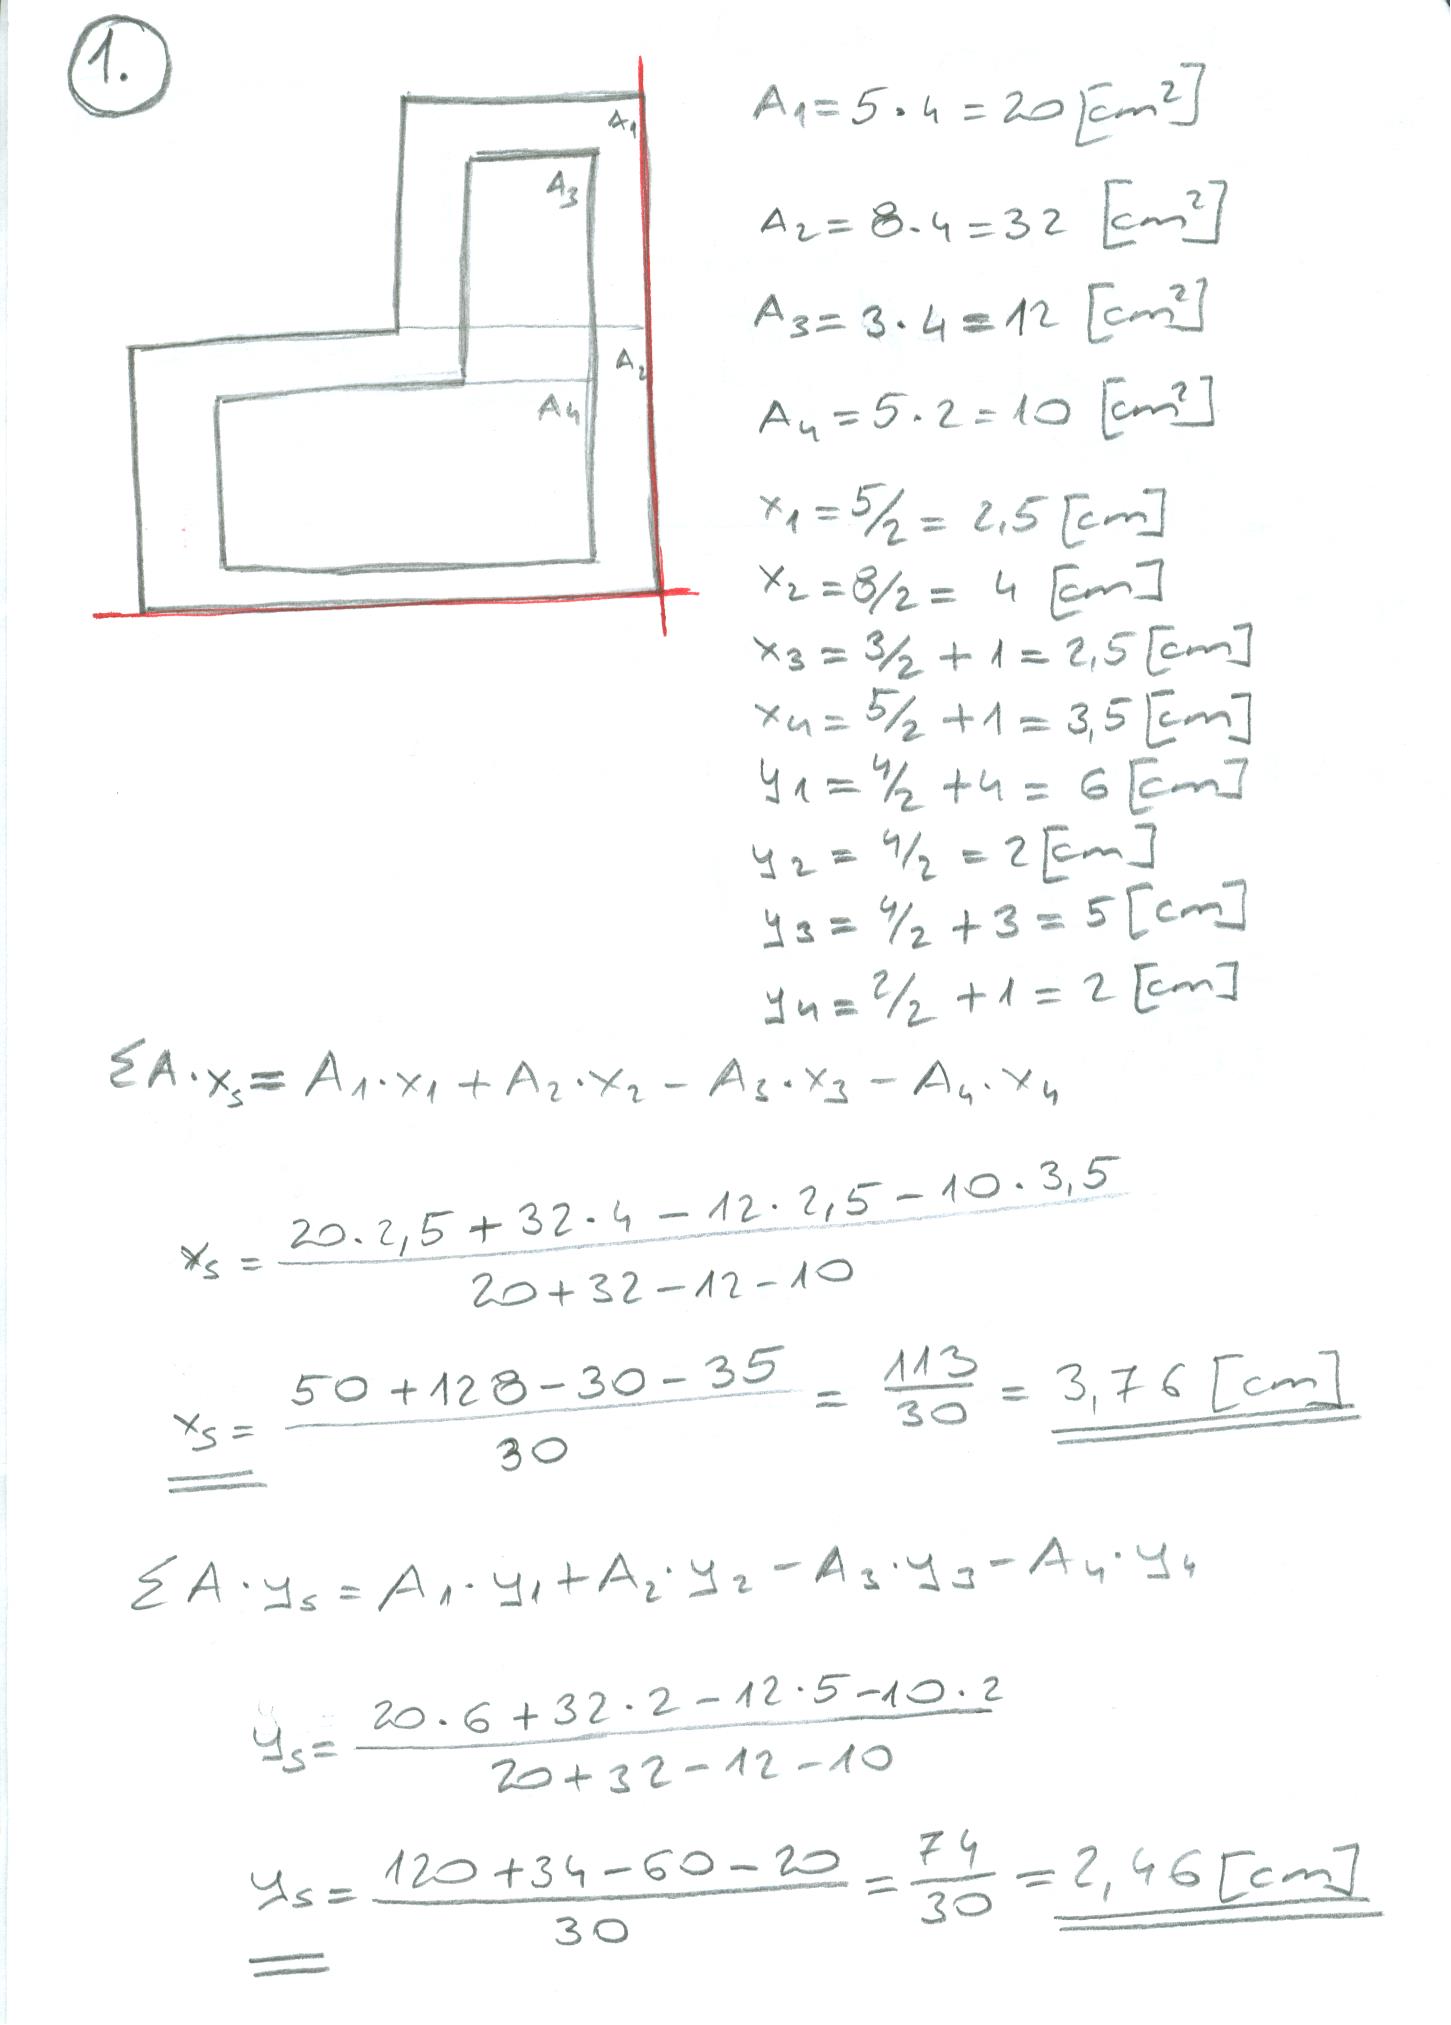 1.
A1
A3
A2
A4
A1 = 5 · 4 = 20 [cm²]
A2 = 8 · 4 = 32 [cm²]
A3 = 3 · 4 = 12 [cm²]
A4 = 5 · 2 = 10 [cm²]
x1 = 5/2 = 2,5 [cm]
x2 = 8/2 = 4 [cm]
x3 = 3/2 + 1 = 2,5 [cm]
x4 = 5/2 + 1 = 3,5 [cm]
y1 = 4/2 + 4 = 6 [cm]
y2 = 4/2 = 2 [cm]
y3 = 4/2 + 3 = 5 [cm]
y4 = 2/2 + 1 = 2 [cm]
ΣA · xs = A1 · x1 + A2 · x2 − A3 · x3 − A4 · x4
20 · 2,5 + 32 · 4 − 12 · 2,5 − 10 · 3,5
xs =
20 + 32 − 12 − 10
50 + 128 − 30 − 35 113
xs = = = 3,76 [cm]
30 30
ΣA · ys = A1 · y1 + A2 · y2 − A3 · y3 − A4 · y4
20 · 6 + 32 · 2 − 12 · 5 − 10 · 2
ys =
20 + 32 − 12 − 10
120 + 34 − 60 − 20 74
ys = = = 2,46 [cm]
30 30